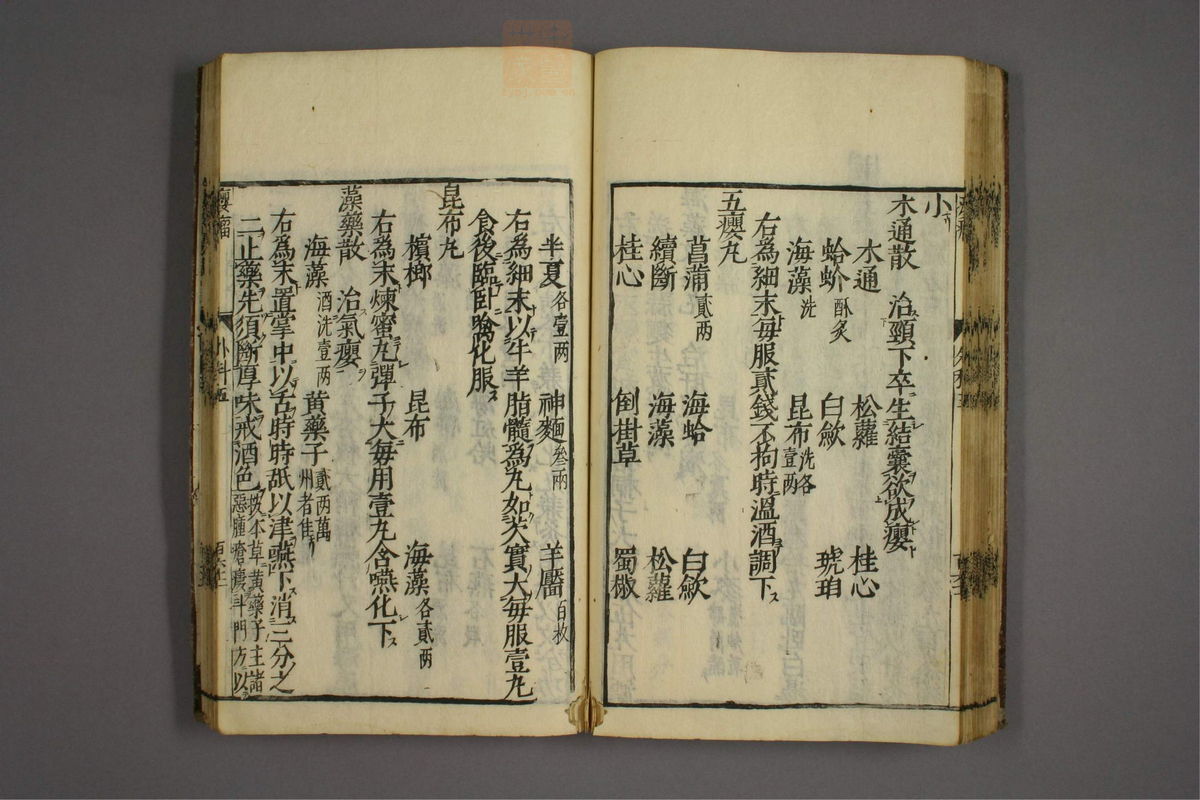 小
木通散 治頸下卒生結囊欲成癭
木通 松蘿 桂心
蛤蚧酥炙 白歛 琥珀
海藻洗 昆布洗各壹两
右為細末每服貳錢不拘時溫酒調下
五癭丸
菖蒲貳两 海蛤 白歛
續斷 海藻 松蘿
桂心 倒掛草 蜀椒
半夏各壹两 神麯叄两 羊靨百枚
右為細末以牛羊脂髓為丸如芡實大每服壹丸
食後臨卧噙化服
昆布丸
檳榔 昆布 海藻各貳两
右為末煉蜜丸彈子大每用壹丸含嚥化下
藻藥散 治氣癭
海藻酒洗壹两 黄藥子貳两萬州者佳
右為末置掌中以舌時時舐以津嚥下消三分之
二止藥先須斷厚味戒酒色按本草黄藥子主諸惡腫瘡瘻斗門方以
癭瘤 外科五